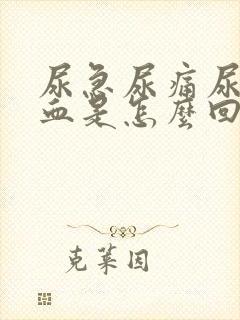 尿急尿痛尿
血是怎麼回
克莱因